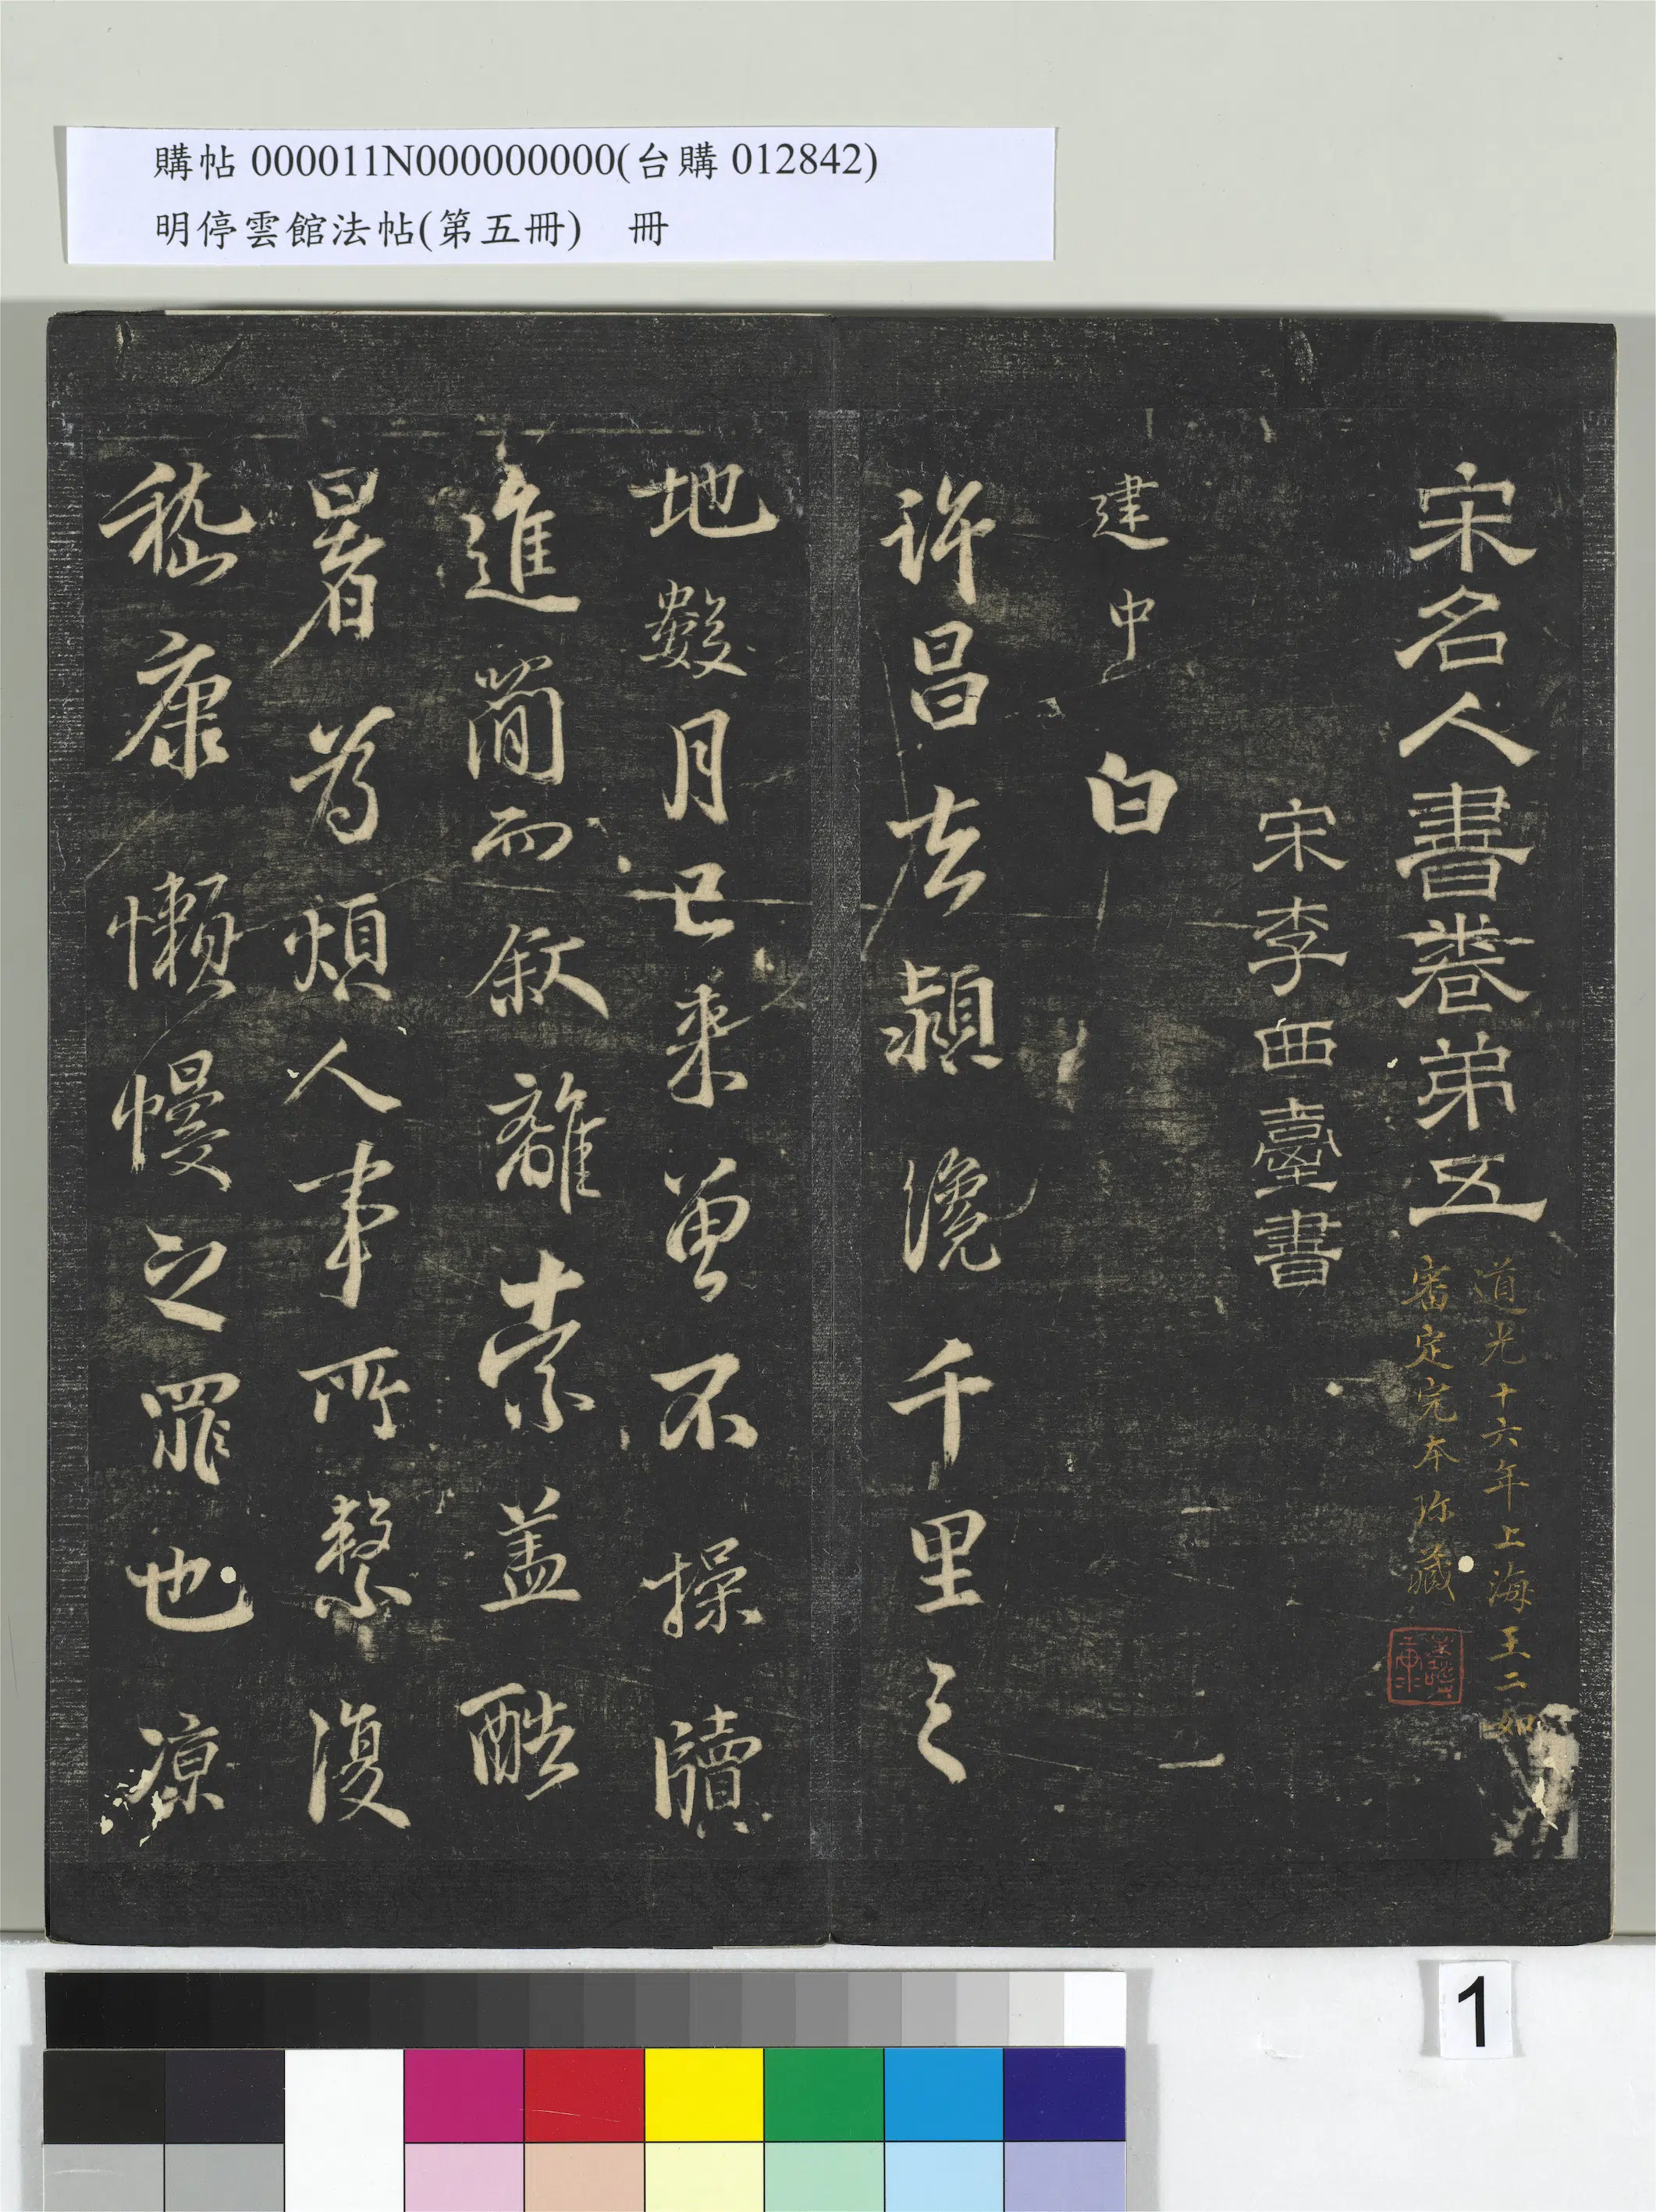 購帖 000011N000000000(台購 012842)
明停雲館法帖(第五冊)　冊
宋名人書卷弟五
道光十六年上海王二如
審定完本珎藏
宋李西臺書
建中白
許昌去潁纔千里之
地數月已来曽不操牘
進簡而叙離索盖酷
暑為煩人事所繫復
嵇康懶慢之罪也凉
1